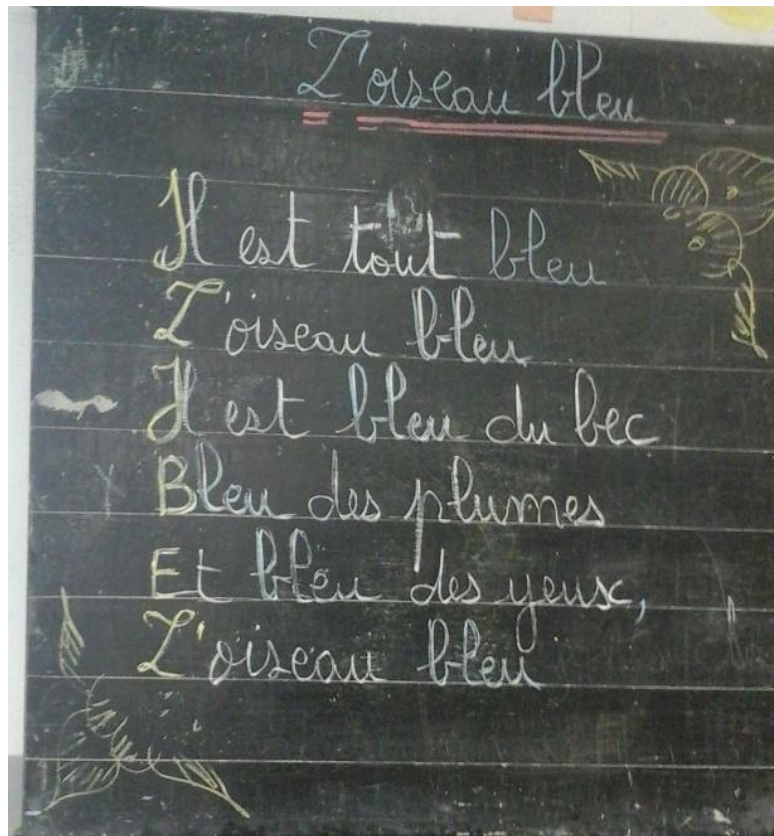 L'oiseau bleu
Il est tout bleu
L'oiseau bleu
Il est bleu du bec
Bleu des plumes
Et bleu des yeux,
L'oiseau bleu